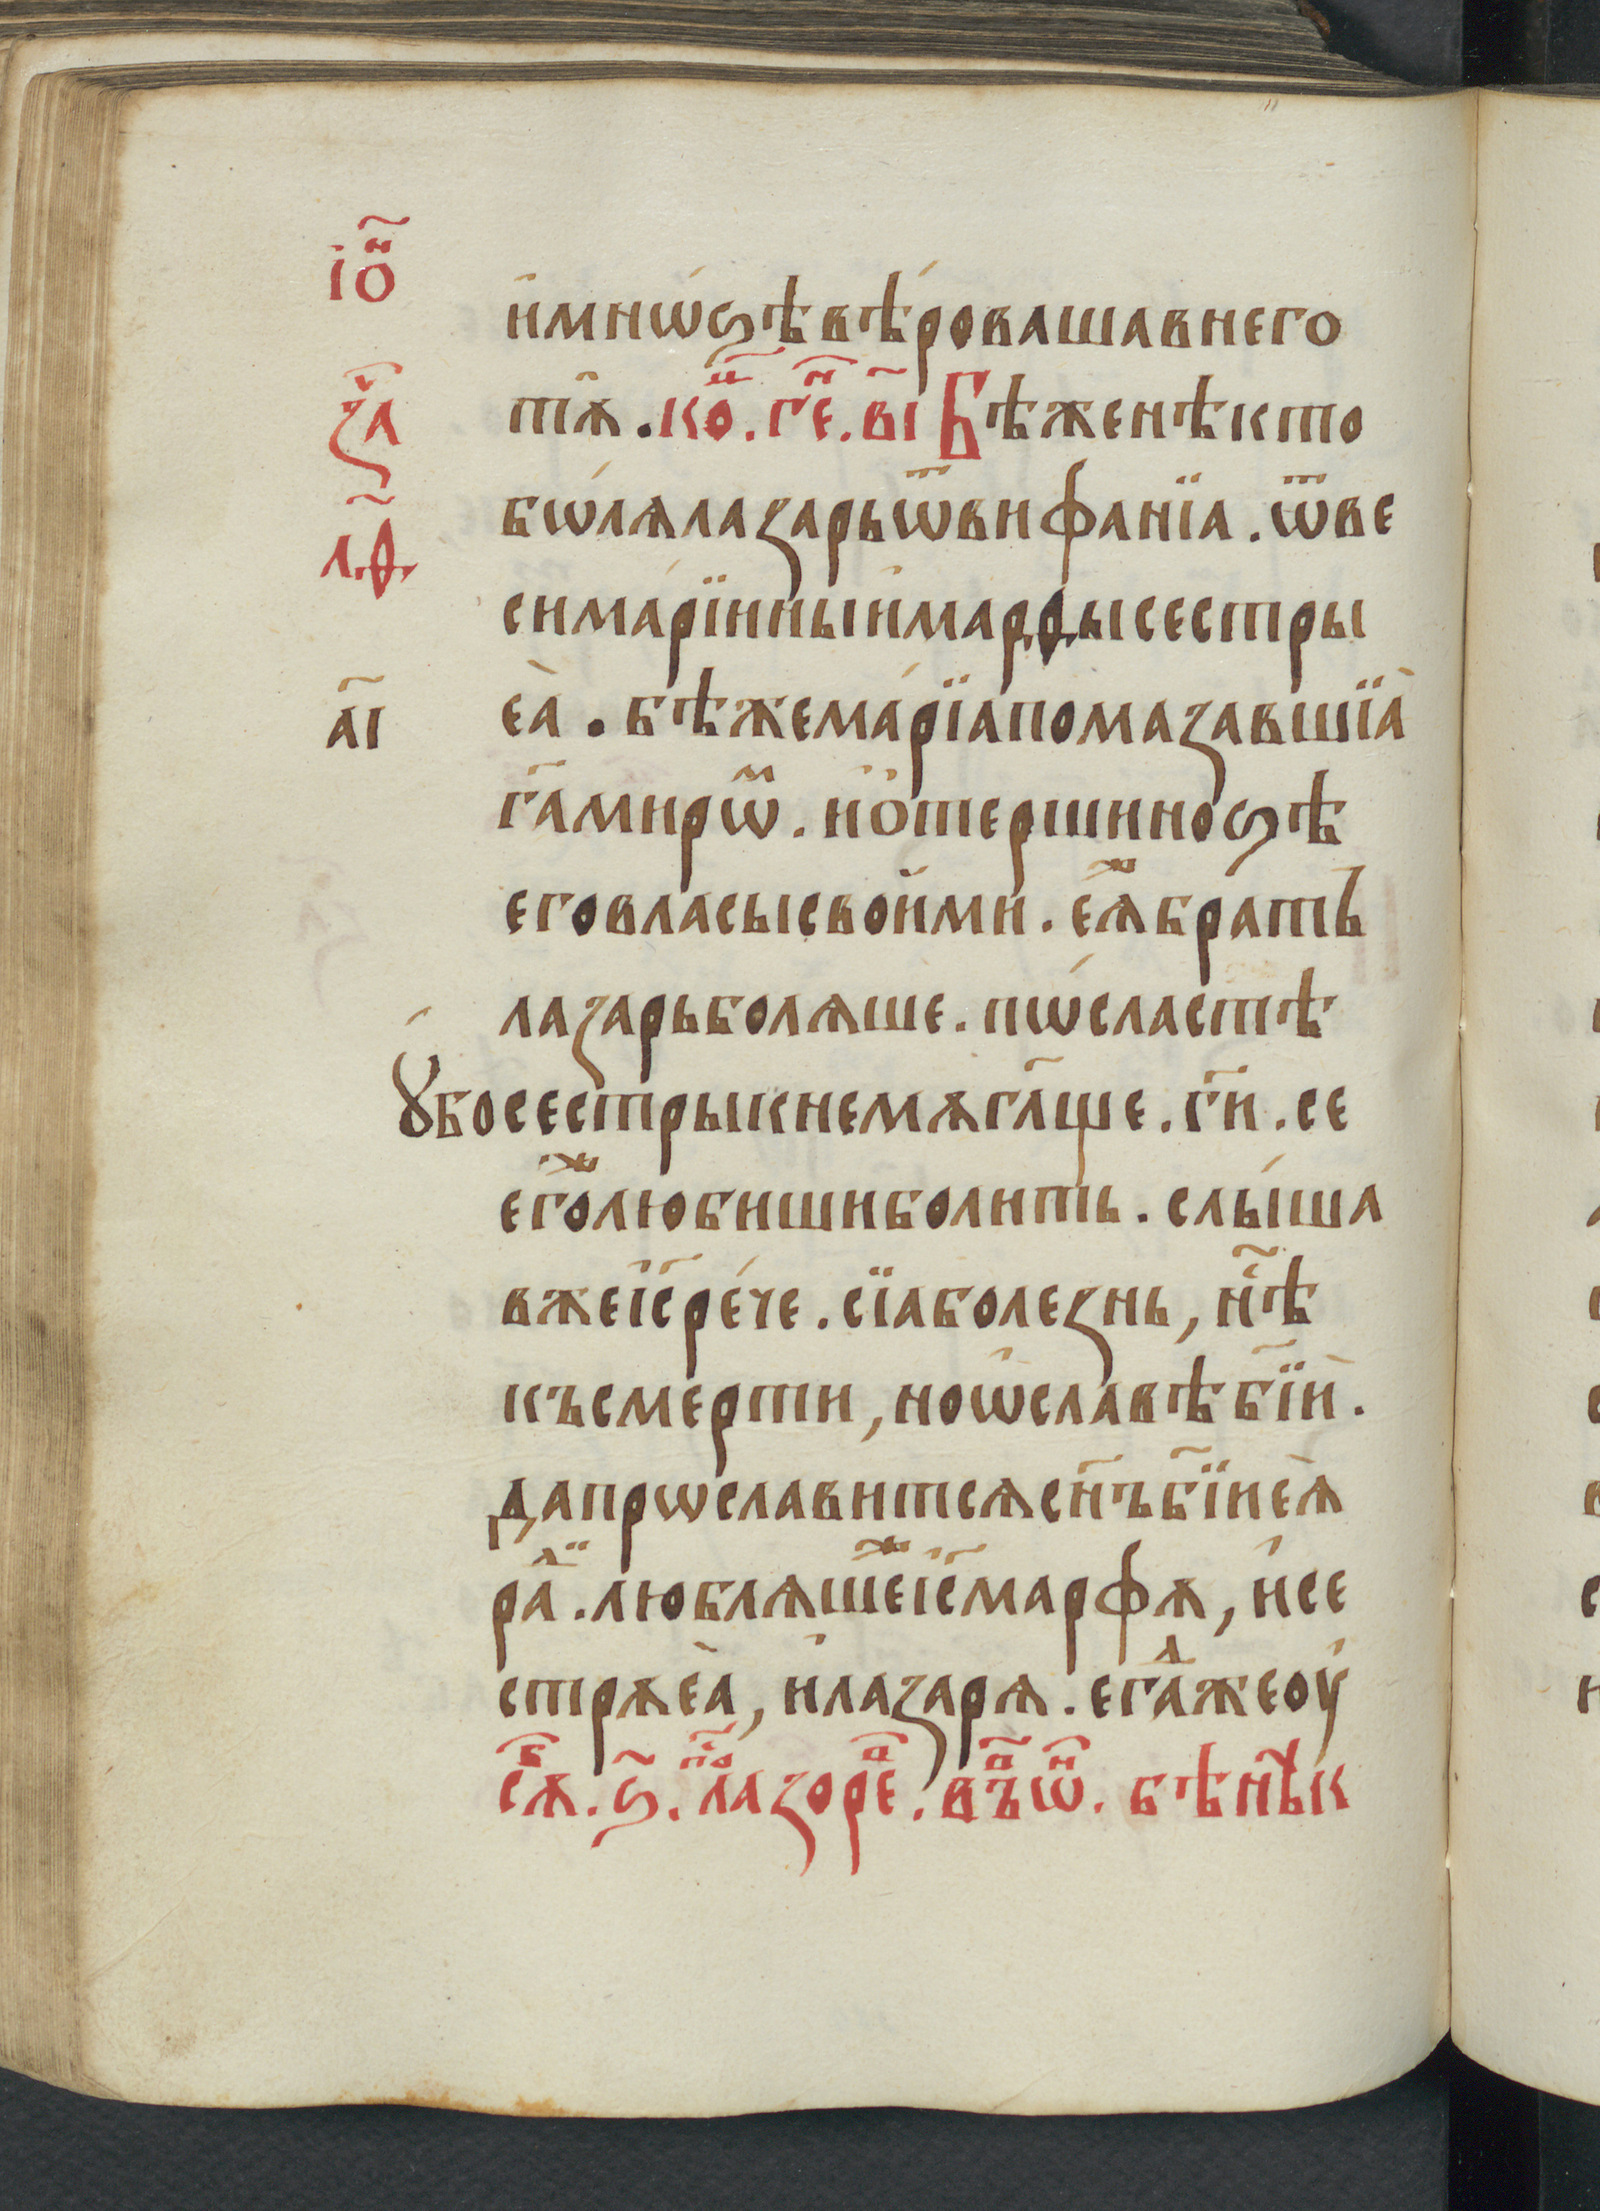 іо҃н
за҃ч
л.ѳ.
а҃і
и҆мнѡ́ѕѣвѣ́ровашавнего
тꙋ̑ .ко҃ц.гє҃н.в҃і Бѣженѣкто
бѡ́лѧлазарьѿвиѳанїа.ѿве
сима́рїиныи҆марѳысестры
еа̀.бѣжема́рїапомазавшїа̀
га҃мирѡ҃м.и҆о҆тершинозѣ
еговласысвои҆ми.еѧ҃жбратъ
лазарьболѧше.пѡ́сластѣ
ꙋ҆босестрыкнемꙋгл҃ще.ги҃.се
его҃жлюбишиболить.слы́ша
вжеі҆с҃рече.сїаболезнь,нѣ҃с
късмерти,ноѡ҆славѣбж҃їи.
дапрѡславитсѧсн҃ъбж҃їиеѧ̀
ра҃д.люблѧше҃жі҆с҃марѳꙋ,и҆се
стрꙋеа̀,и҆лазарѧ.егд҃ажеоу҆
сꙋ҃б.ѕ҃.пр҃лазоре҃в.въ҃ѡ҃н.бѣнѣ́к